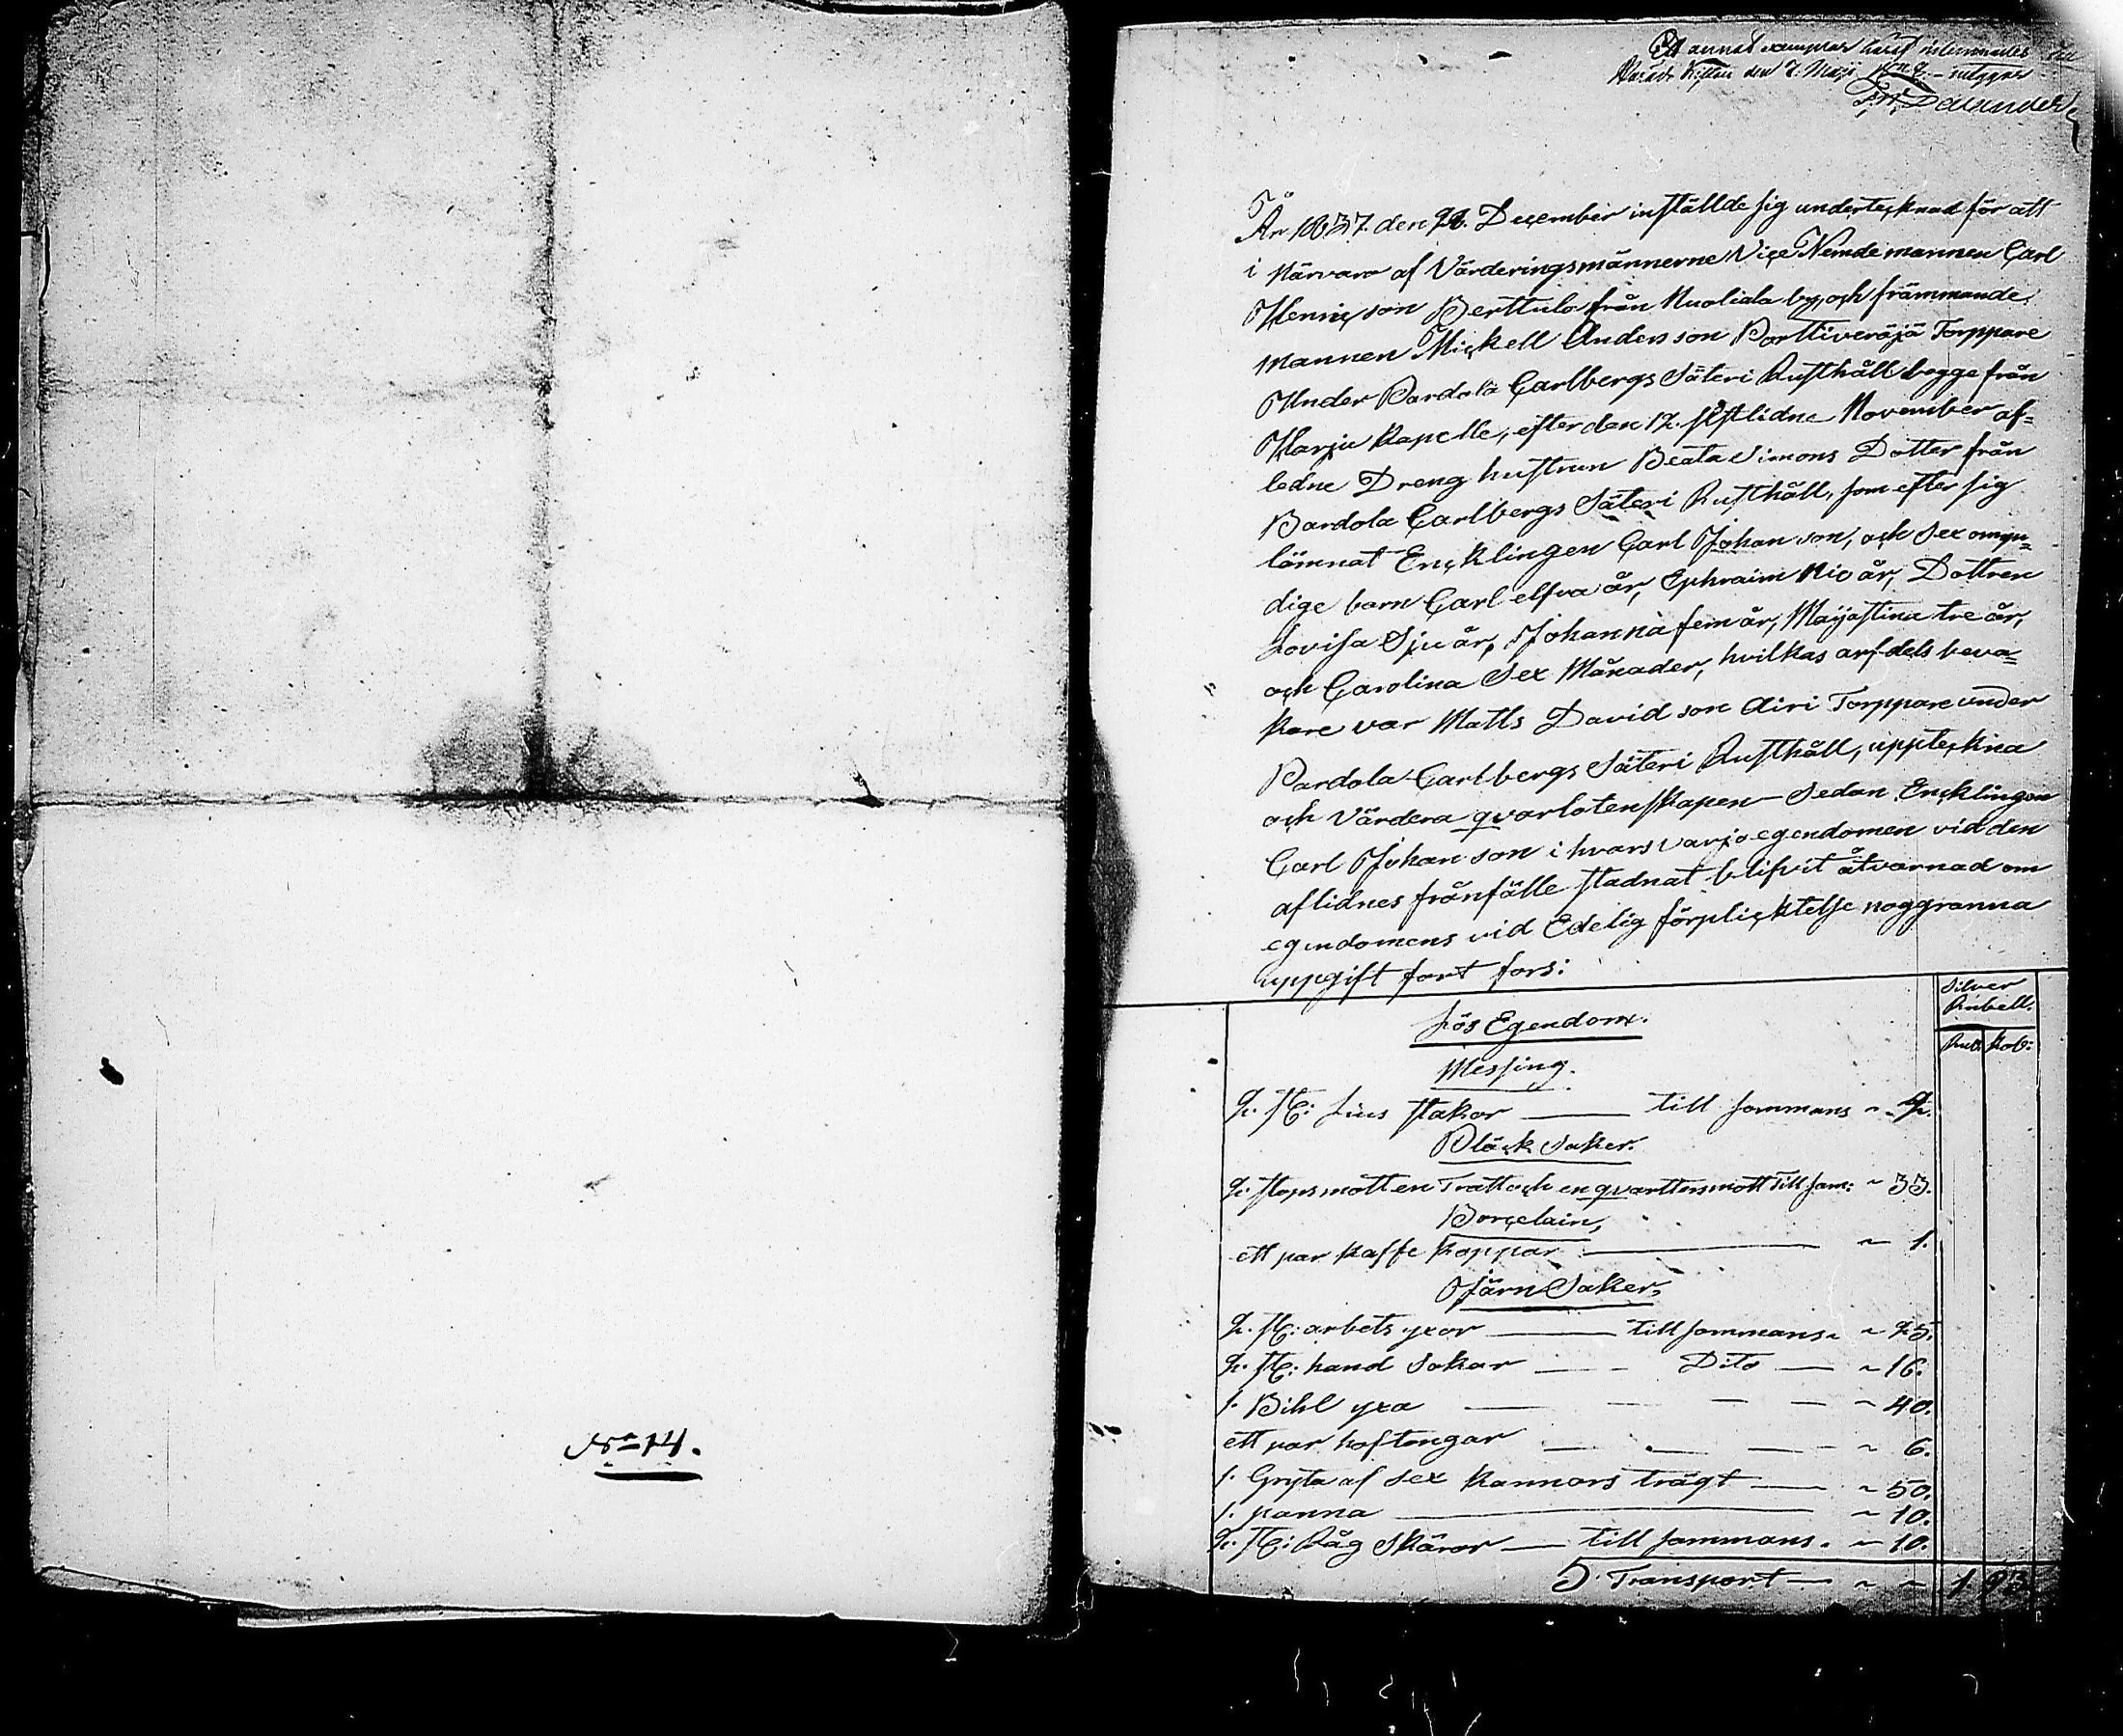 No 14.
Ett annat exemplar häraf inlemnades
den 7. Maji
År 1837. den 28. December inställde sig undertecknad för att
i Närvaro af Värderingsmännerne Vice Nemdemannen Carl
Henricson Berttula från Nuoliala by, och främmande
mannen Mickell Andersson Porttiveräjä Torppare
Under Pardola Carlbergs Säteri Rusthåll begge från
Harju Kapelle, efter den 12. sistlidne November af=
ledne Dreng hustrun Beata Simons Dotter från
Bardola Carlbergs Säteri Rusthåll, som efter sig
lämnat Encklingen Carl Johanson, och Sex omyn=
dige barn Carl elfva år, Ephraim Nio år, Dottren
Lovisa Sju år, Johanna fem år, Maijastina tre år,
och Carolina Sex Månader, hvilkas arfdels beva=
kare var Matts Davidson Airi Torppare under
Pardola Carlbergs Säteri Rusthåll, uppteckna
och Värdera qvarlotenskapen – Sedan Encklingen
Carl Johanson i hvars varjo egendomen vid den
aflidnes frånfälle stadnat blifvit åtvarnad om
egendomens vid Edelig förplicktelse noggranna
uppgift fort fors:
Silver
Rubell.
Rub: Kop:
Lös Egendom.
Messing.
2. st: Lius stakar — till sommans ~ 2.
Bläck Saker.
2. stops mått en Tratt och en qvarttersmått till sam: ~ 33.
Borcelain,
ett par Kaffe Koppar — ~ 1.
Järn Saker,
2. st: arbets yxor — till sommans ~ ~ 25.
2. st: hand Sokar — Dito — ~ 16.
1. Bihl yxa — ~ 40.
ett par hoftongar — ~ 6.
1. Gryta af sex Kannors trägt — ~ 50.
1. panna — ~ 10.
2. st: Råg Skäror — till sommans. ~ 10.
Transport — ~ ~ 1 93